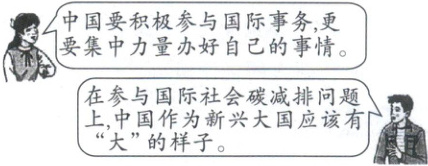 中国要积极参与国际事务,更
要集中力量办好自己的事情。
在参与国际社会碳减排问题
上,中国作为新兴大国应该有
“大”的样子。